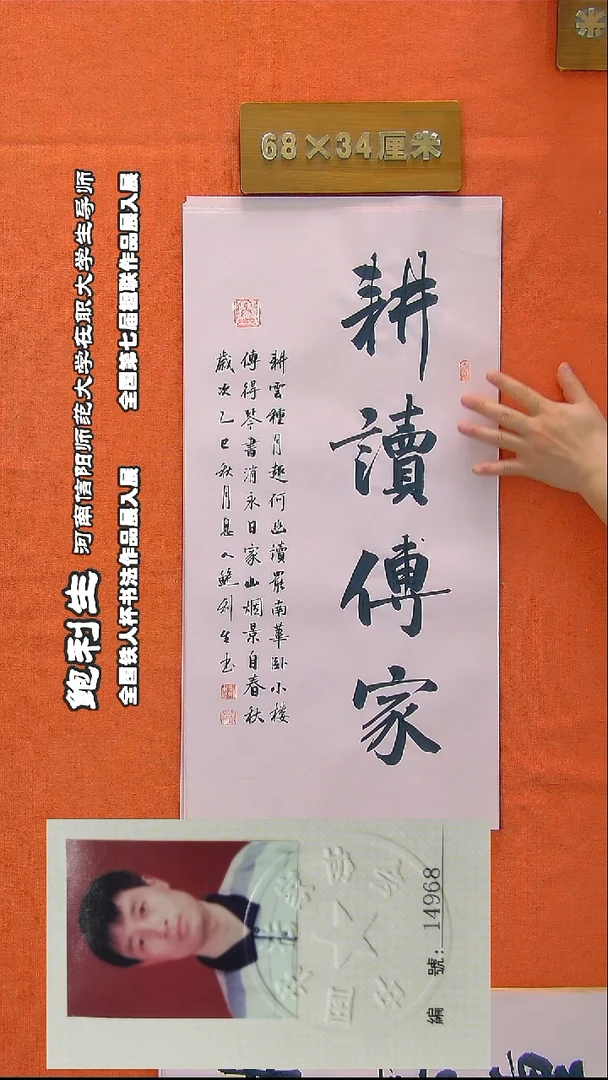 68×34厘米
米
耕讀傳家
耕雲種月趣何幽讀罷南華卧小樓
傳得琴書消永日家山烟景自春秋
歲次乙巳秋月息人鲍利生书
鲍利生 河南信阳师范大学在职大学生导师
全国铁人杯书法作品展入展 全国第七届楹联作品展入展
編號: 14968